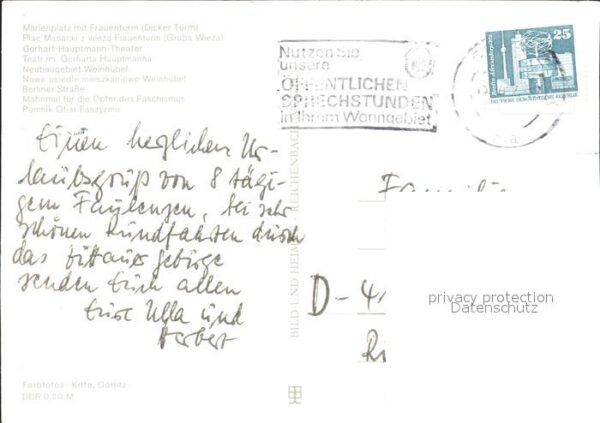 Marienplatz mit Frauenturm (Dicker Turm)
Plac Mariacki z wieżą Frauenturm (Gruba Wieża)
Gerhart-Hauptmann-Theater
Teatr im. Gerharta Hauptmanna
Neubaugebiet Weinhübel
Nowe osiedle mieszkaniowe Weinhübel
Berliner Straße
Mahnmal für die Opfer des Faschismus
Pomnik Ofiar Faszyzmu
Nutzen Sie
unsere
ÖFFENTLICHEN
SPRECHSTUNDEN
in Ihrem Wohngebiet
25
Berlin, Alexanderplatz
DEUTSCHE DEMOKRATISCHE REPUBLIK
Einen herzlichen Ur-
laubsgruß von 8 tägi-
gem Faulenzen, bei sehr
schönen Rundfahrten durch
das Zittauer gebirge
senden Euch allen
Eure Ulla und
Herbert
BILD UND HEIMAT REICHENBACH
Familie
D-4
privacy protection
Datenschutz
Farbfotos: Kitte, Görlitz
DDR 0,20 M